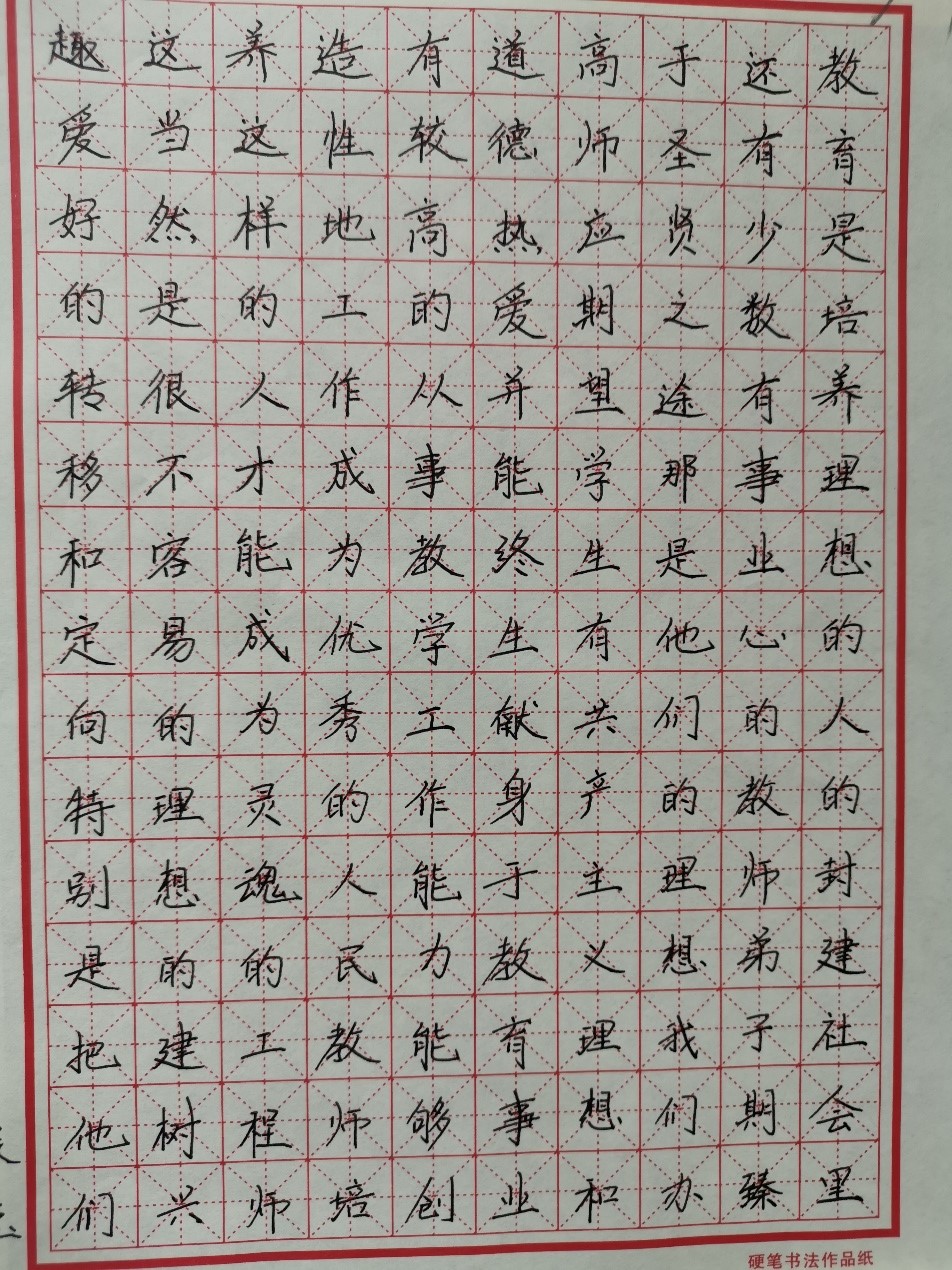 教育是培养理想的人的封建社会里
还有少数有事业心的教师弟子期臻
于圣贤之途那是他们的理想我们办
高师应期望学生有共产主义理想和
道德热爱并能终生献身于教育事业
有较高的从事教学工作能力能够创
造性地工作成为优秀的人民教师培
养这样的人才能成为灵魂的工程师
这当然是很不容易的理想的建树兴
趣爱好的转移和定向特别是把他们
硬笔书法作品纸